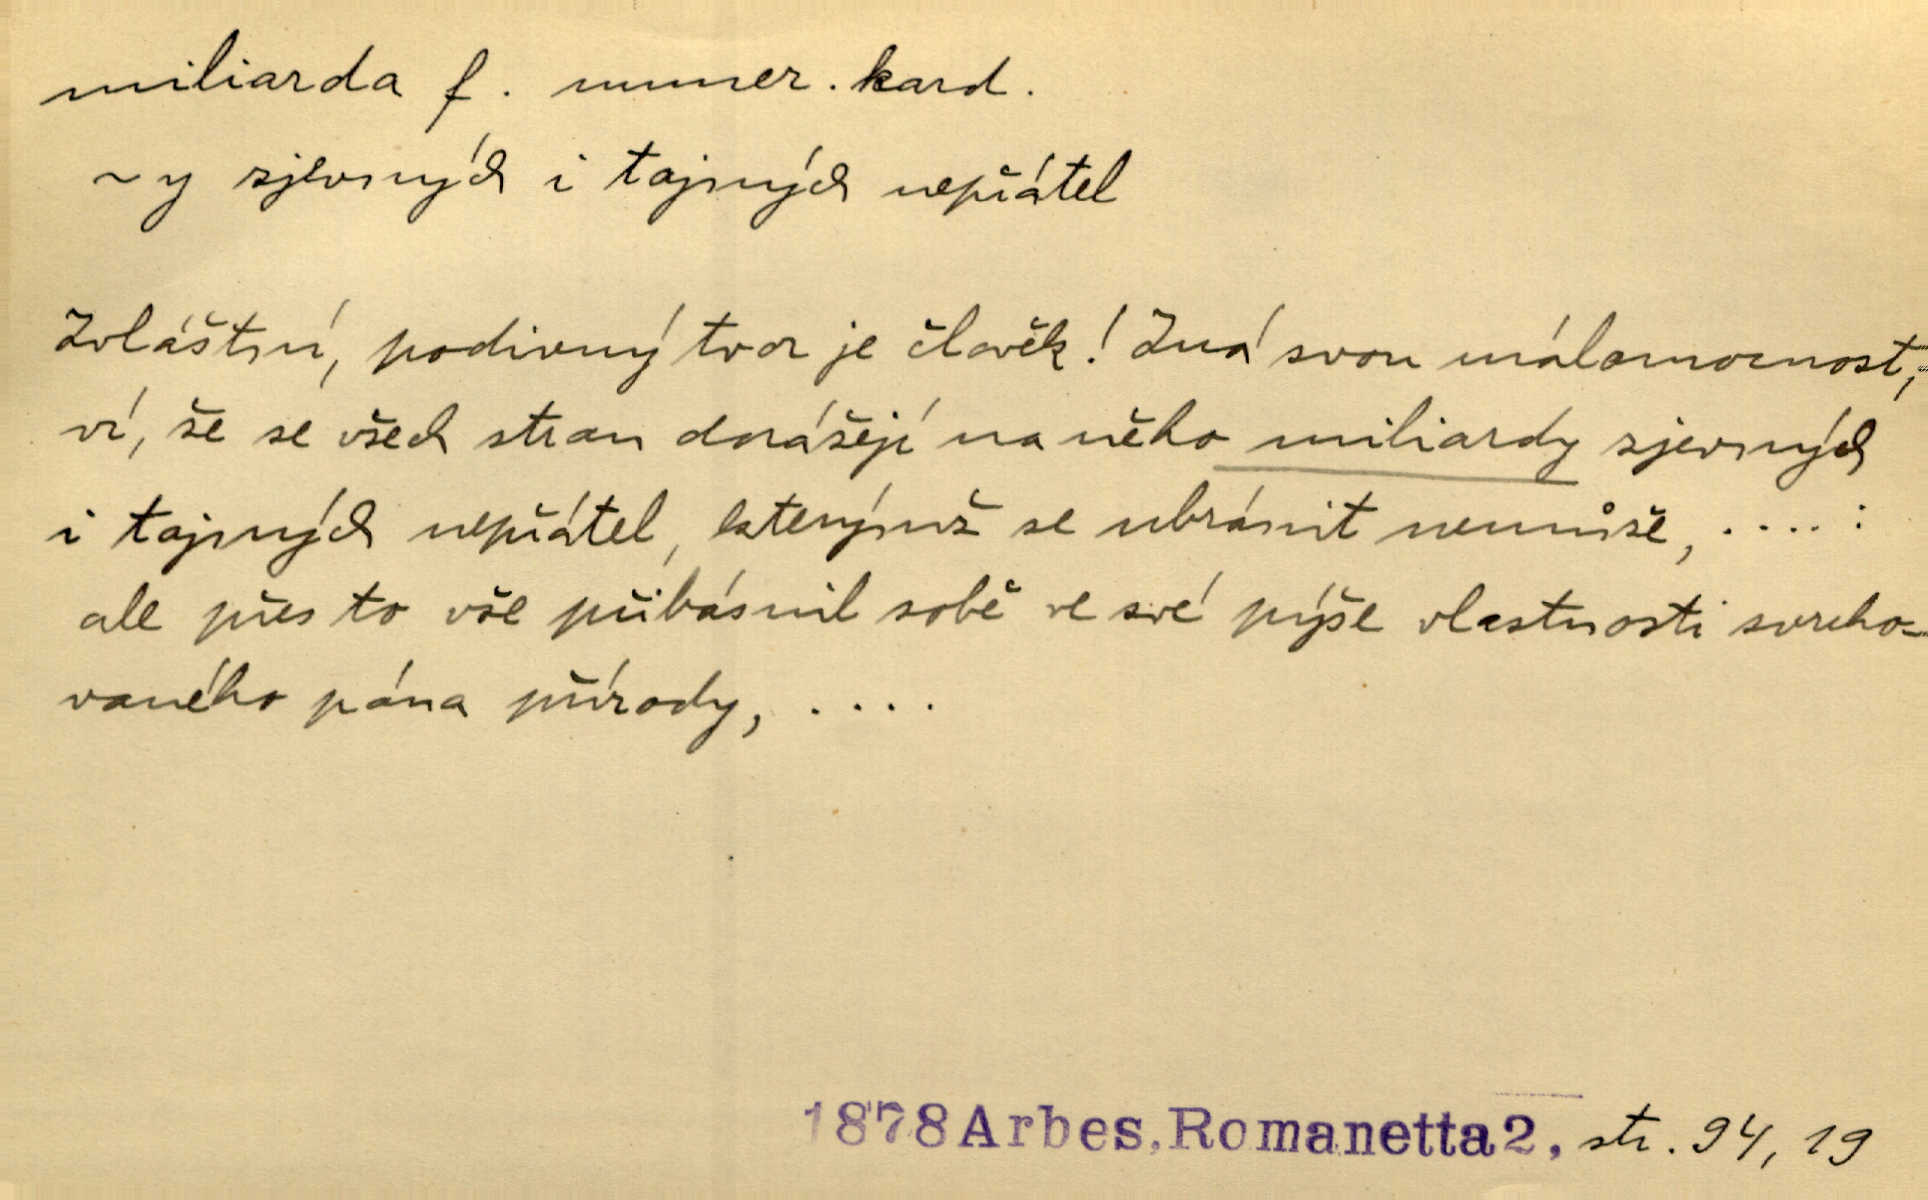 miliarda f. numer. kard.
~y zjevných i tajných nepřátel
Zvláštní, podivný tvor je člověk! Zná svou málomocnost,
ví, že se všech stran dorážejí na něho miliardy zjevných
i tajných nepřátel, kterýmž se ubránit nemůže, ....:
ale přes to vše přibásnil sobě ve své pýše vlastnosti svrcho-
vaného pána přírody, ....
1878 Arbes, Romanetta 2, str. 94, 19